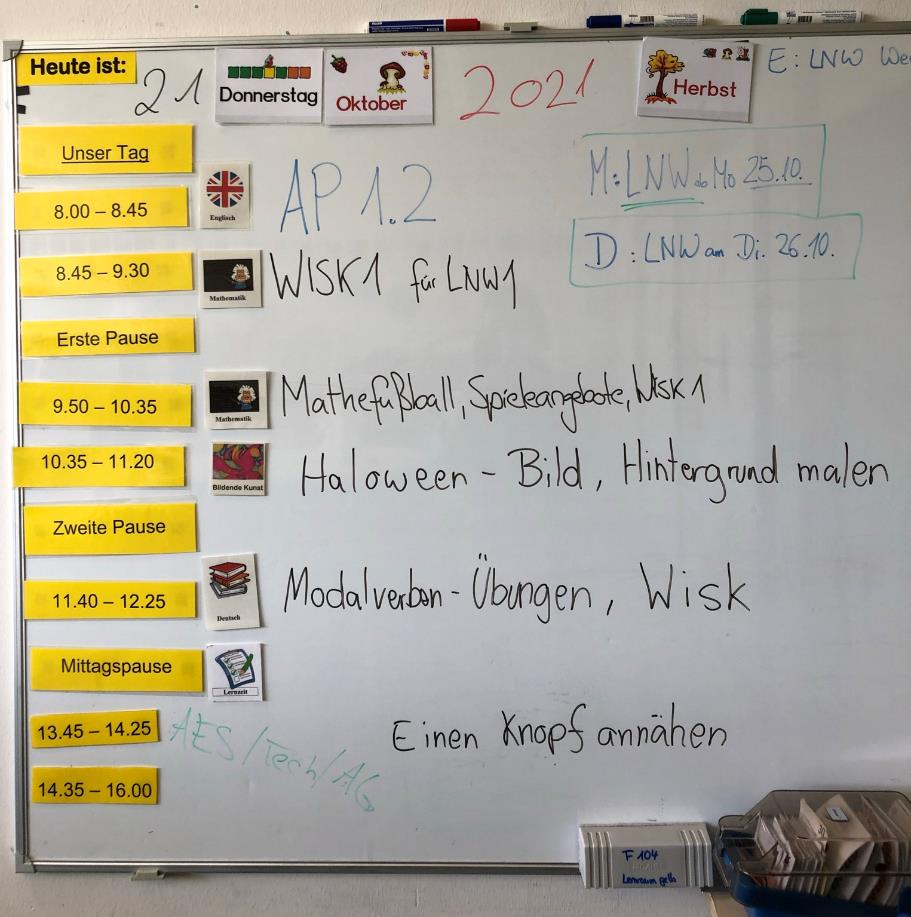 Heute ist: 21 Donnerstag Oktober 2021 Herbst E: LNW
Unser Tag
M: LNW ab Mo 25.10.
8.00 – 8.45 Englisch AP 1.2
D: LNW am Di. 26.10.
8.45 – 9.30 Mathematik WISK1 für LNW1
Erste Pause
9.50 – 10.35 Mathematik Mathefußball, Spieleangebote, Wisk1
10.35 – 11.20 Bildende Kunst Haloween - Bild, Hintergrund malen
Zweite Pause
11.40 – 12.25 Deutsch Modalverben - Übungen, Wisk
Mittagspause Lernzeit
13.45 – 14.25 AES/Tech/AG Einen Knopf annähen
14.35 – 16.00
F 104
Lernraum gelb